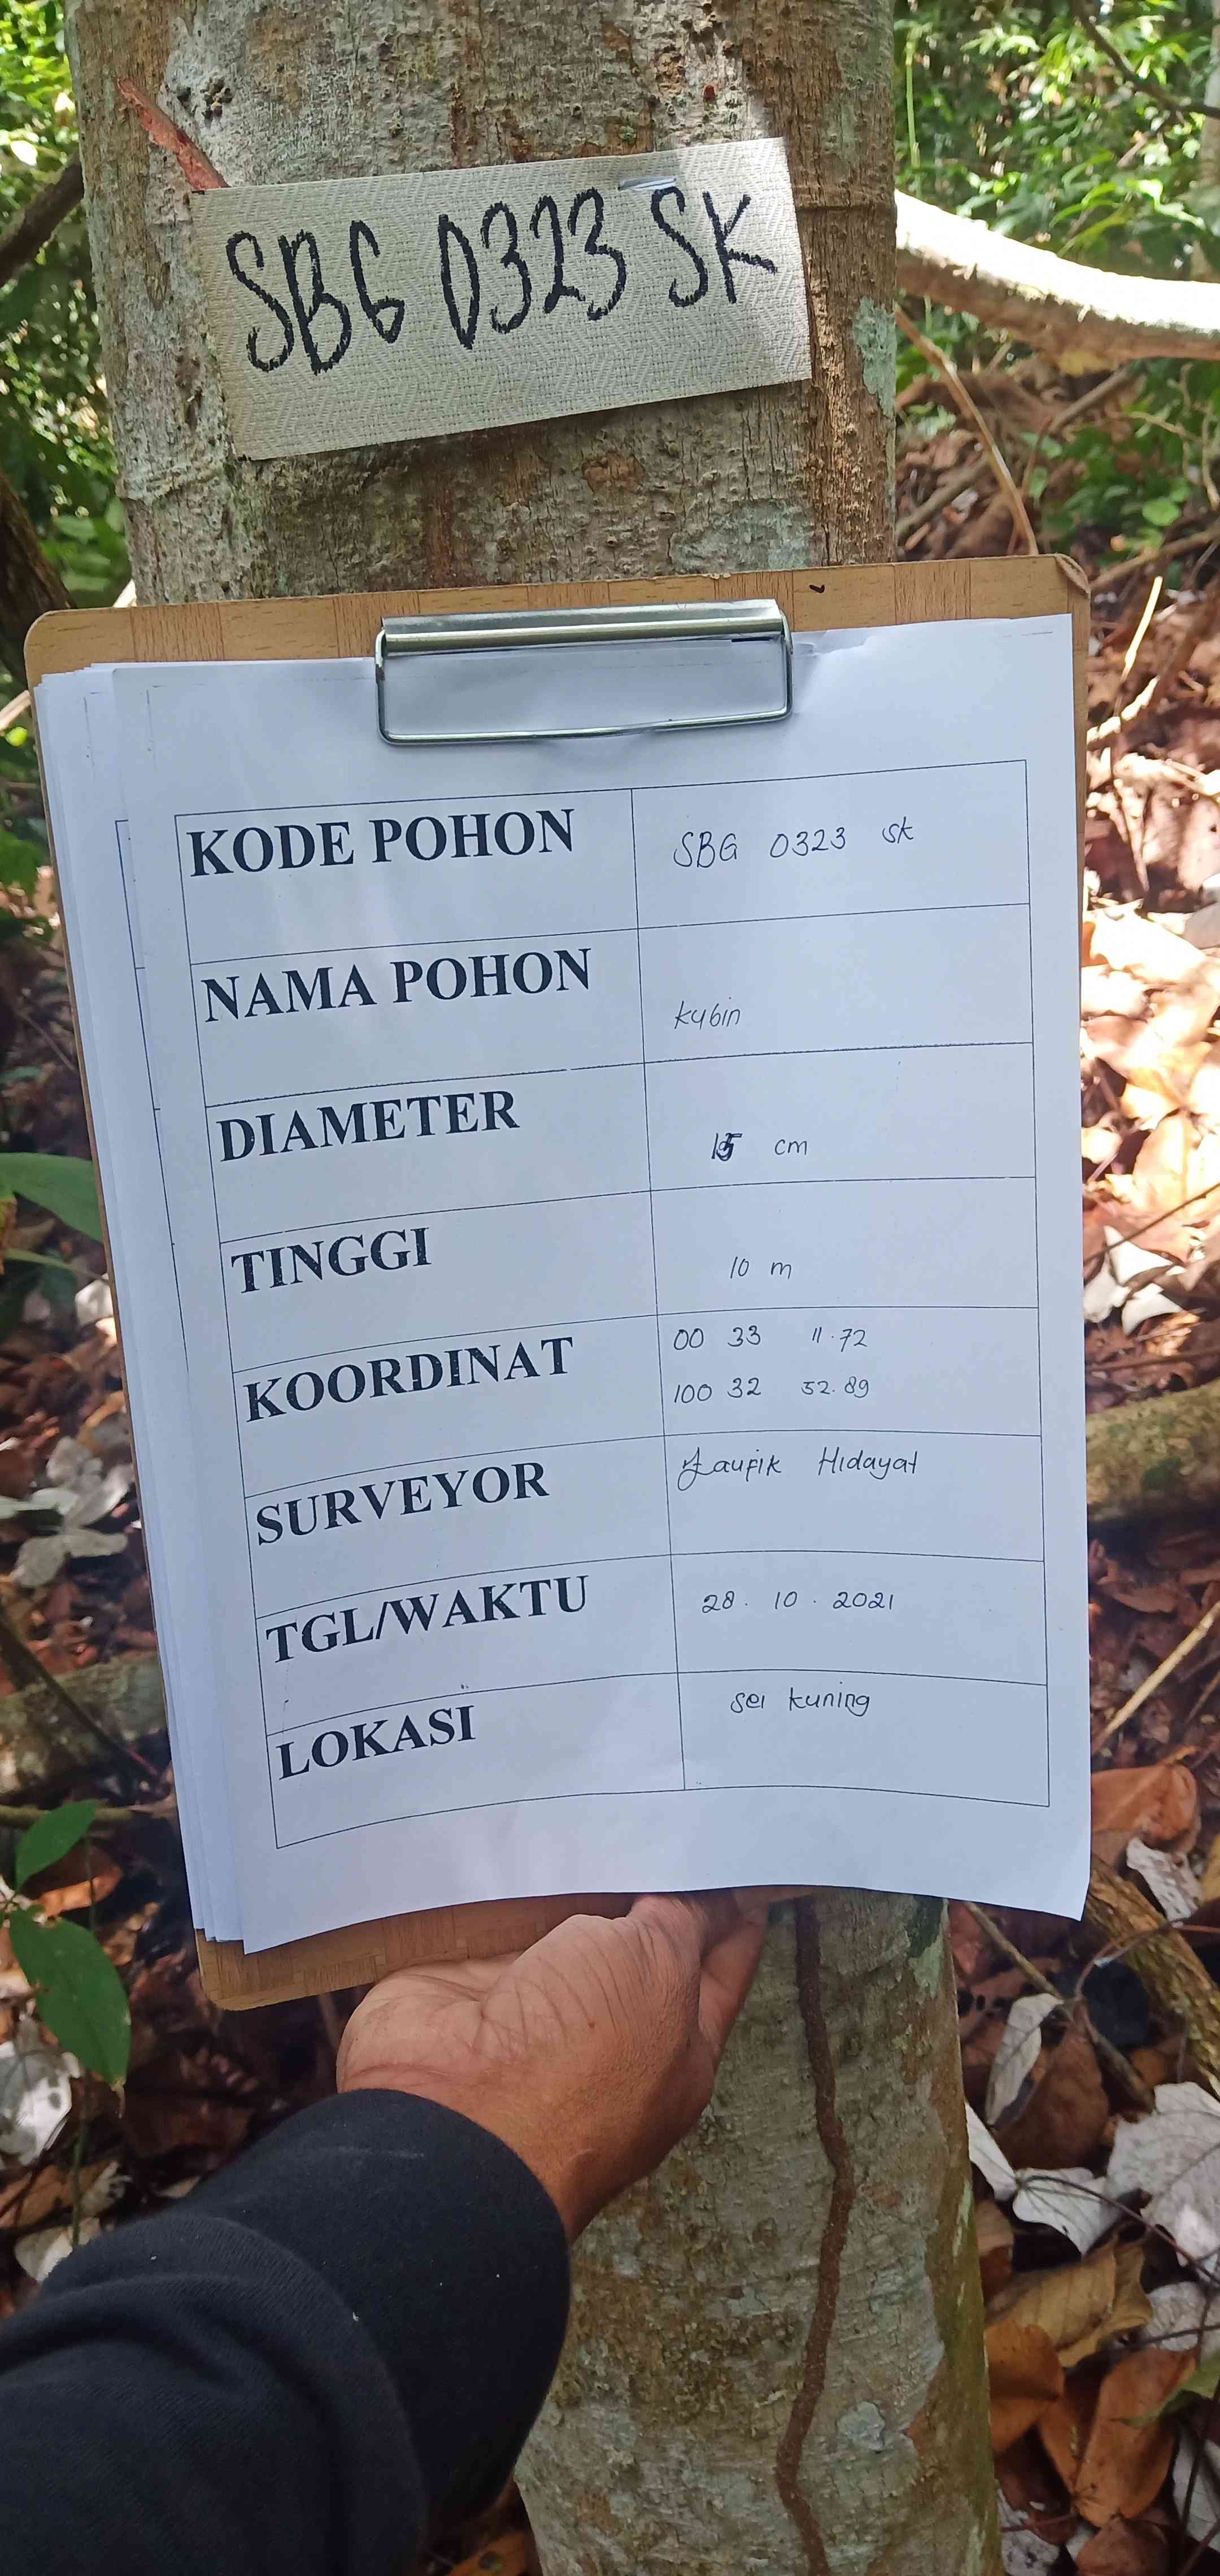 SBG 0323 SK
KODE POHON SBG 0323 sk
NAMA POHON kybin
DIAMETER 15 cm
TINGGI 10 m
KOORDINAT 00 33 11.72
100 32 52.89
SURVEYOR Taufik Hidayat
TGL/WAKTU 28. 10. 2021
LOKASI sei kuning